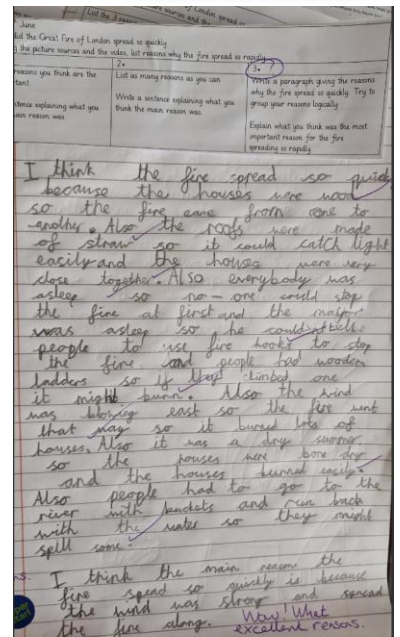 June
did the Great Fire of London spread so quickly
the picture sources and the video, list reasons why the fire spread so rapidly
reasons you think are the
sentence explaining what you
main reason was.
2*
List as many reasons as you can
Write a sentence explaining what you
think the main reason was.
3*
Write a paragraph giving the reasons
why the fire spread so quickly. Try to
group your reasons logically
Explain what you think was the most
important reason for the fire
spreading so rapidly
I think the fire spread so quick
because the houses were wood
so the fire came from one to
another. Also the roofs were made
of straw so it could catch light
easily and the houses were very
close together. Also everybody was
asleep so no-one could stop
the fire at first and the major
was asleep so he couldn't tell
people to use fire hooks to stop
the fire and people had wooden
ladders so if they climbed one
it might burn. Also the wind
was blowing east so the fire went
that way so it burned lots of
houses. Also it was a dry summer
so the houses were bone dry
and the houses burned easily.
Also people had to go to the
river with buckets and run back
with the water so they might
spill some.
I think the main reason the
fire spead so quickly is because
the wind was strong and spread
the fire along.
Wow! What
excellent reasons.